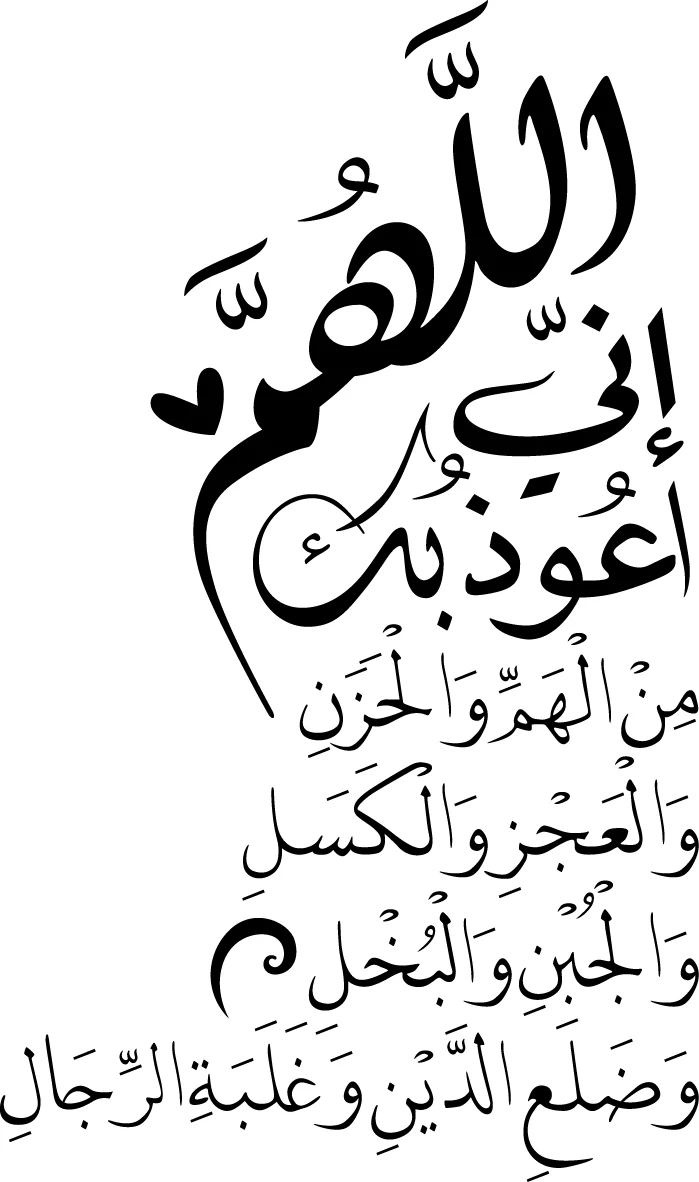 اللَّهُمَّ
إنّي
اعُوذبُك
مِنْ الْهَمِّ وَالْحَزَنِ
وَالْعَجْزِ وَالْكَسَلِ
وَالْجُبْنِ وَالْبُخْل
وَضَلَعِ الدَّيْنِ وَغَلَبَةِ الرِّجَالِ